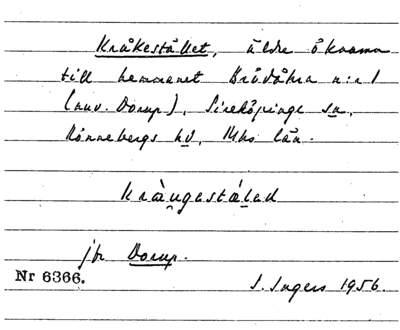 Kråkestället, äldre öknamn
till hemmanet Brödåkra n:r 1
(nuv. Dorup), Sireköpinge sn,
Rönnebergs hd, Mhs län.
Kràngastálad
jfr Dorup.
Nr 6366.
I. Ingers 1956.